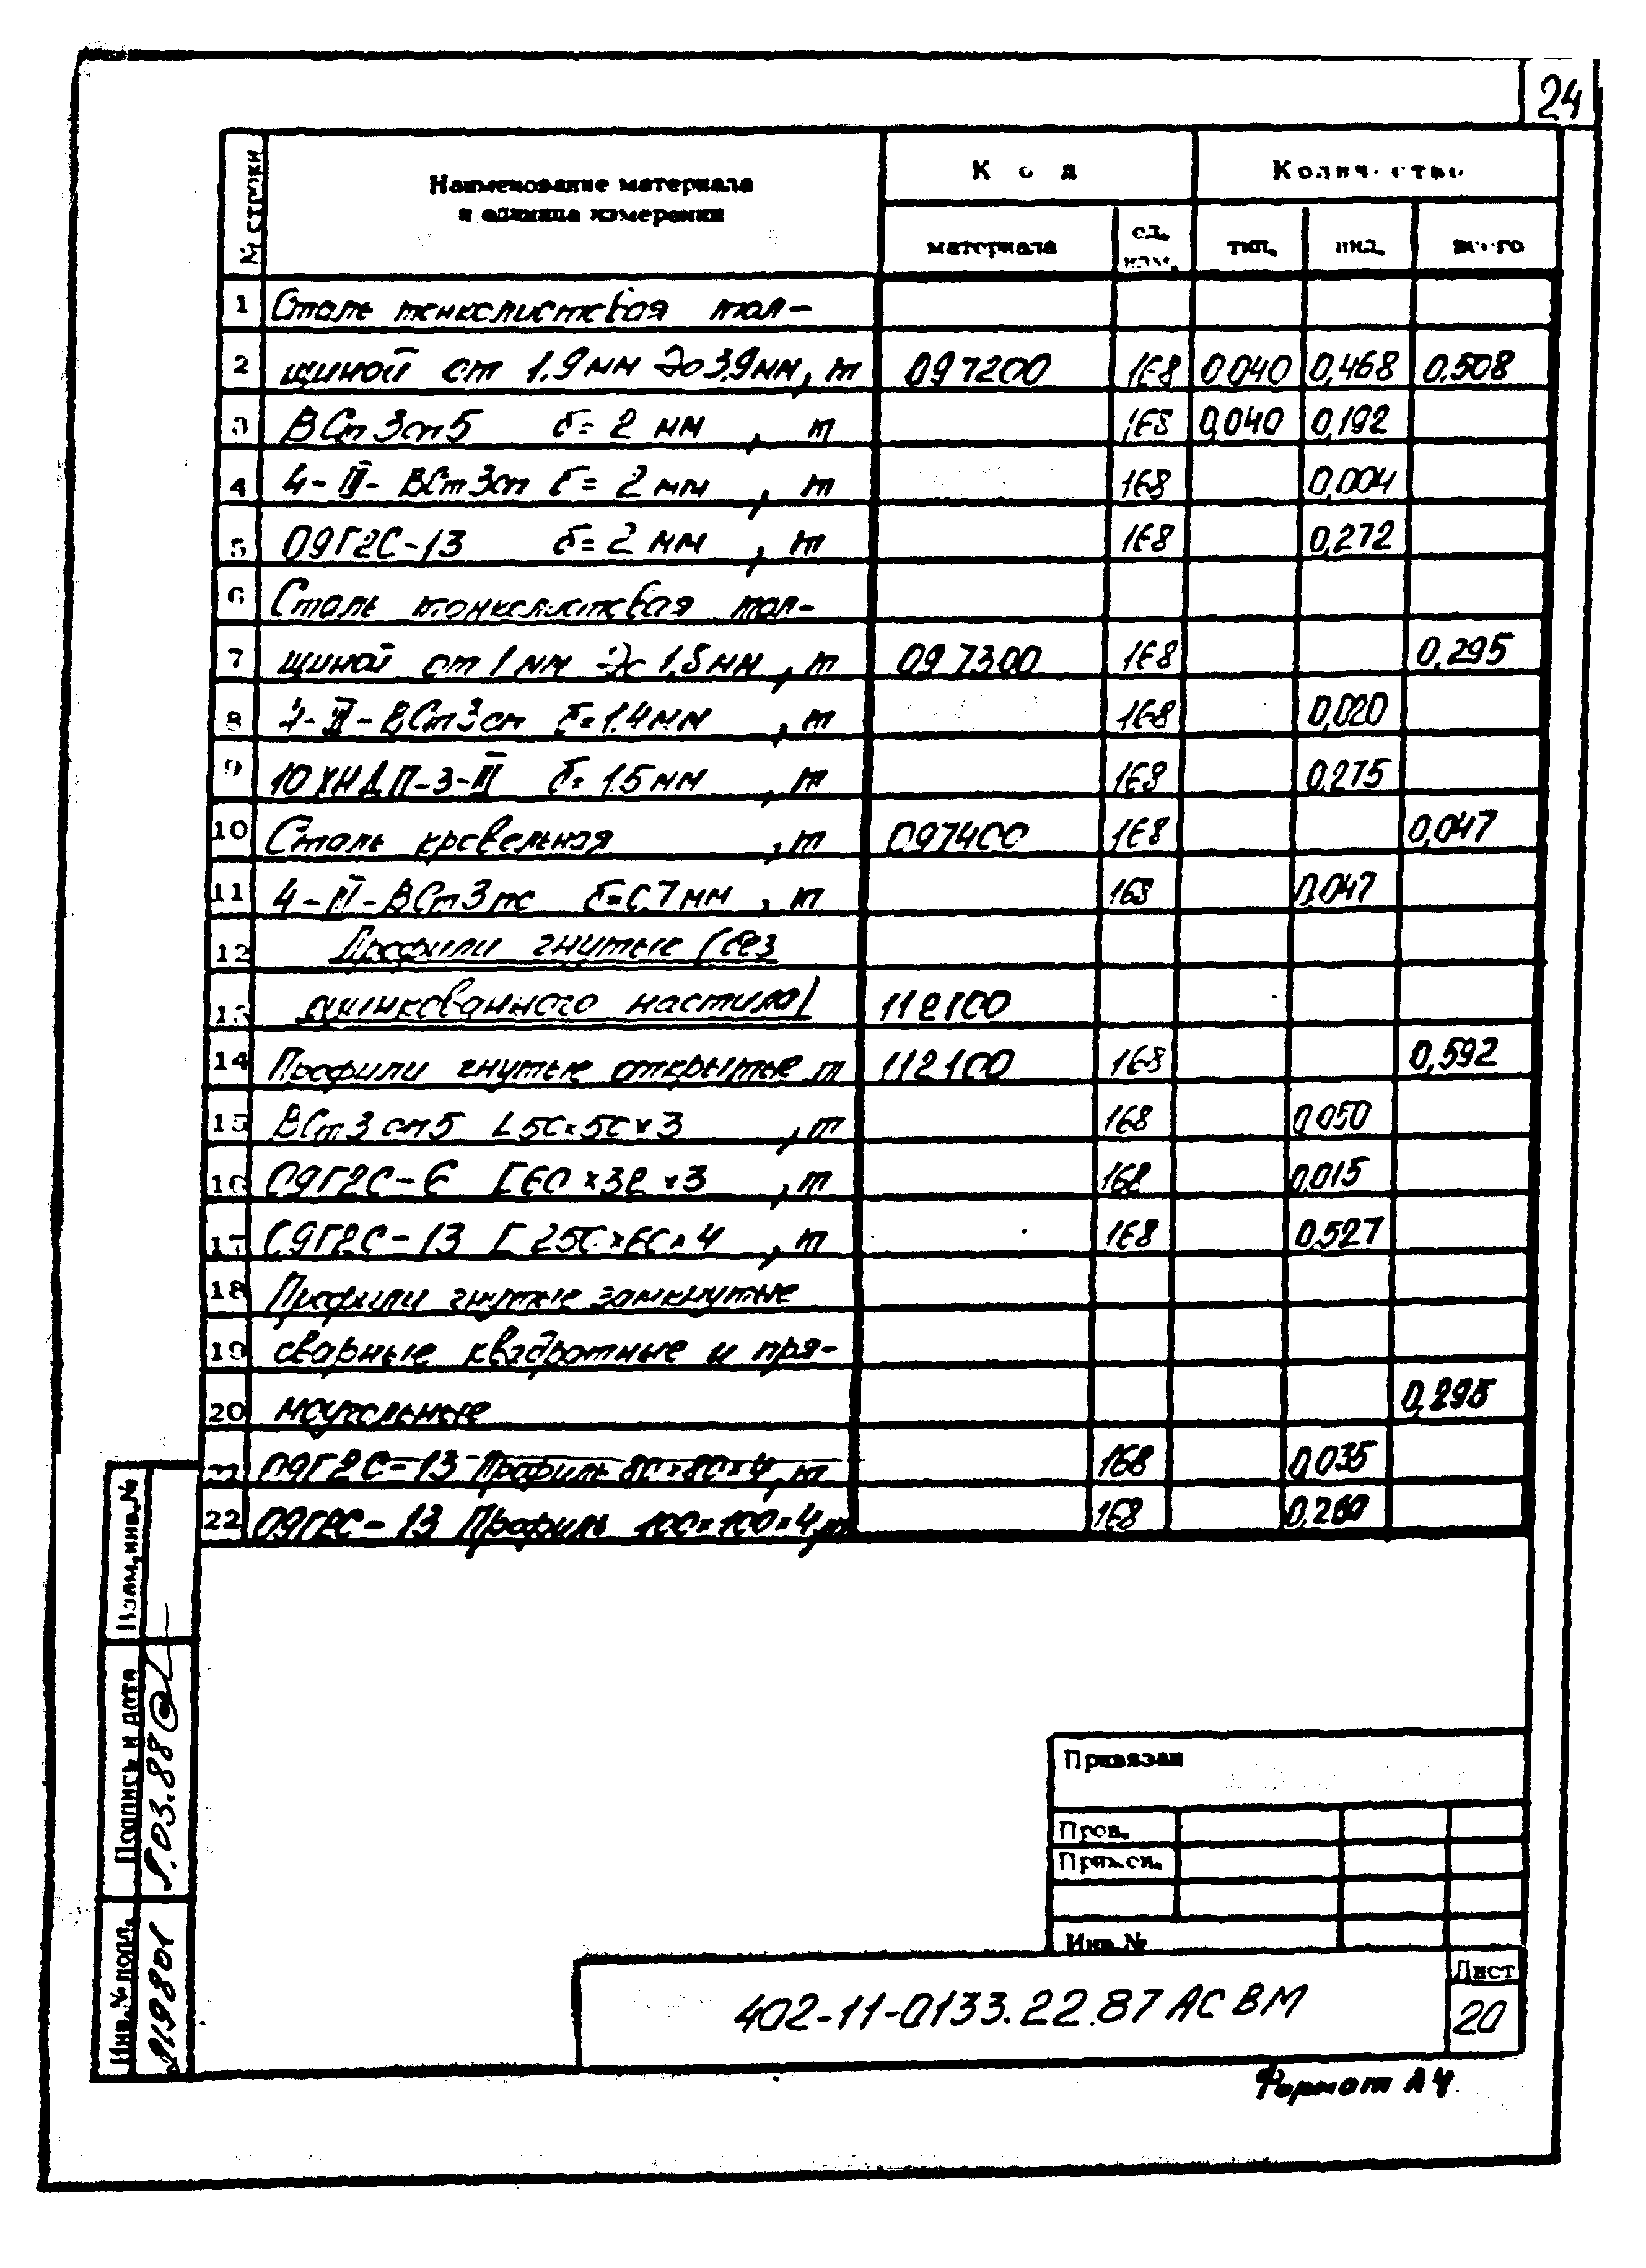 24
№ строки Наименование материала и единица измерения Код Количество
материала ед. изм. тип. инд. всего
1 Сталь тонколистовая тол-
2 щиной от 1.9 мм до 3.9 мм, т 097200 168 0,040 0,468 0,508
3 ВСт3сп5 б=2 мм , т 168 0,040 0,192
4 4-II-ВСт3сп б=2 мм , т 168 0,004
5 09Г2С-13 б=2 мм , т 168 0,272
6 Сталь тонколистовая тол-
7 щиной от 1 мм до 1,8 мм , т 097300 168 0,295
8 4-II-ВСт3сп б=1.4 мм , т 168 0,020
9 10ХНДП-3-II б=1.5 мм , т 168 0,275
10 Сталь кровельная , т 097400 168 0,047
11 4-II-ВСт3пс б=0.7 мм , т 168 0,047
12 Профили гнутые (без
13 оцинкованного настила) 112100
14 Профили гнутые открытые, т 112100 168 0,592
15 ВСт3сп5 L 50×50×3 , т 168 0,050
16 09Г2С-6 [ 60×32×3 , т 168 0,015
17 09Г2С-13 [ 250×60×4 , т 168 0,527
18 Профили гнутые замкнутые
19 сварные квадратные и пря-
20 моугольные 0,295
21 09Г2С-13 Профиль 80×80×4, т 168 0,035
22 09Г2С-13 Профиль 100×100×4, т 168 0,260
Взам. инв. №
Подпись и дата 9.03.88
Инв. № подл. 219801
Привязан
Пров.
Инв. №
402-11-0133.22.87 АС ВМ
Лист
20
Формат А4